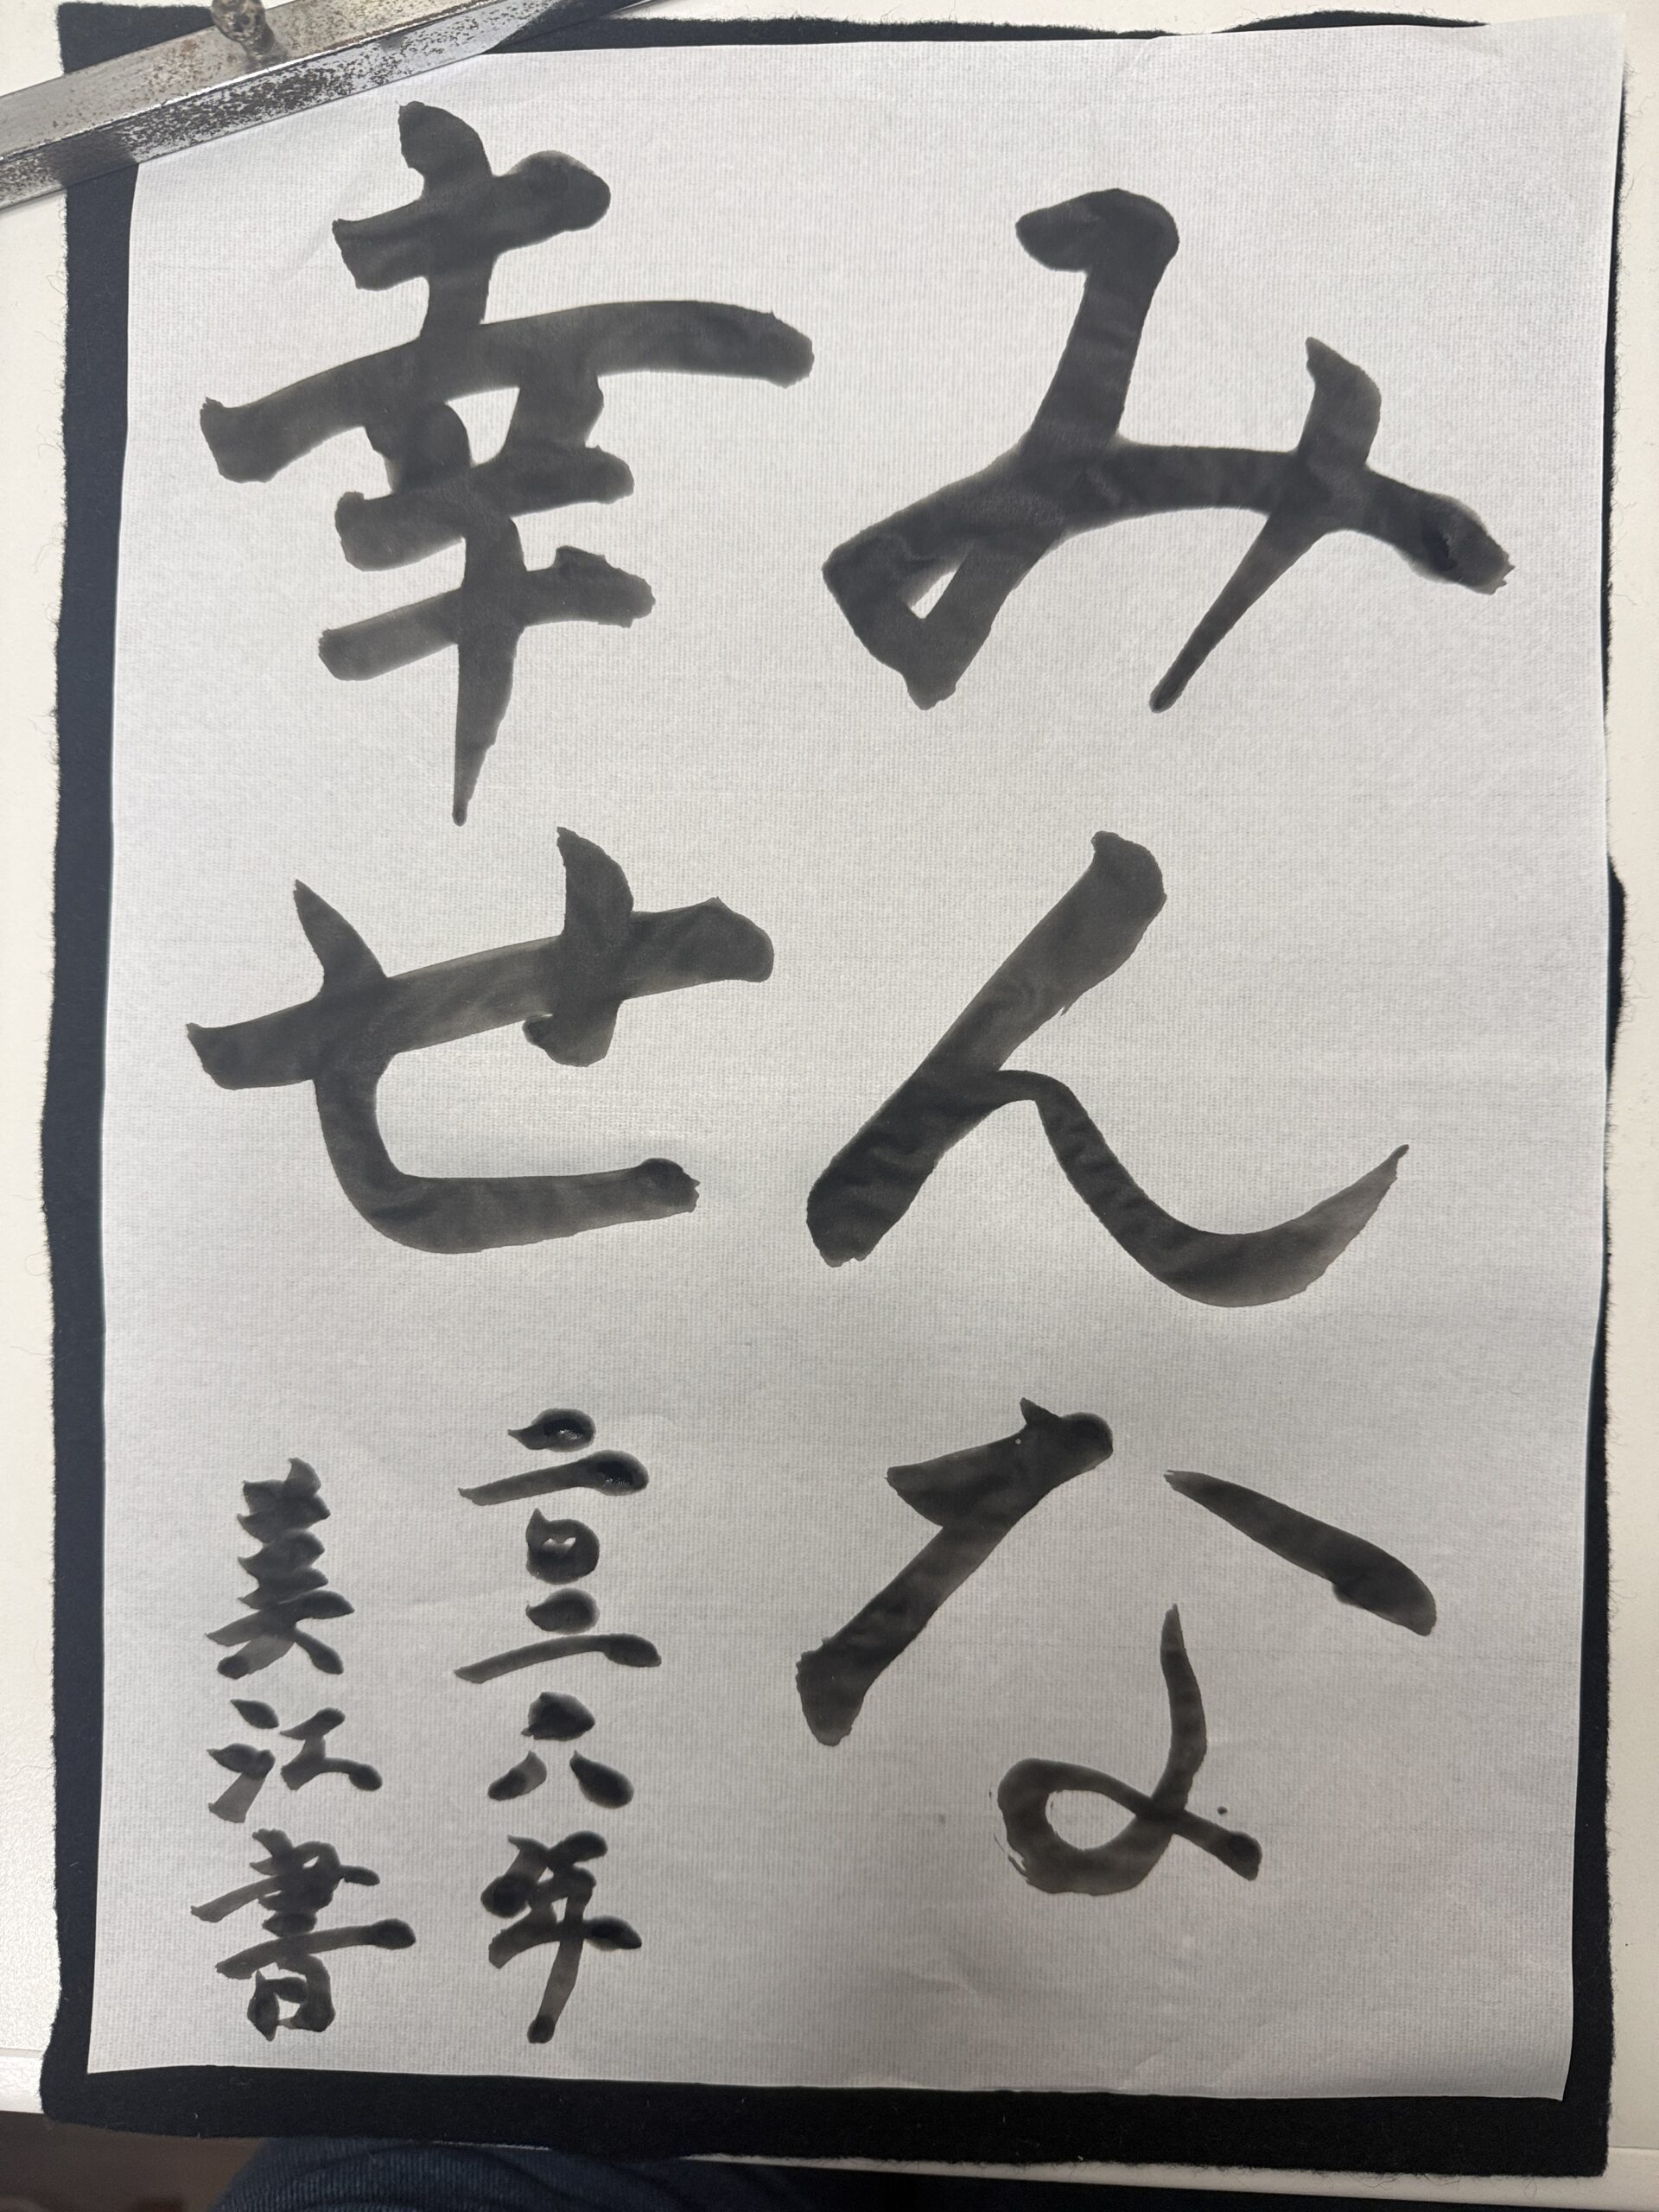 みんな
幸せ
二〇二六年
美江書